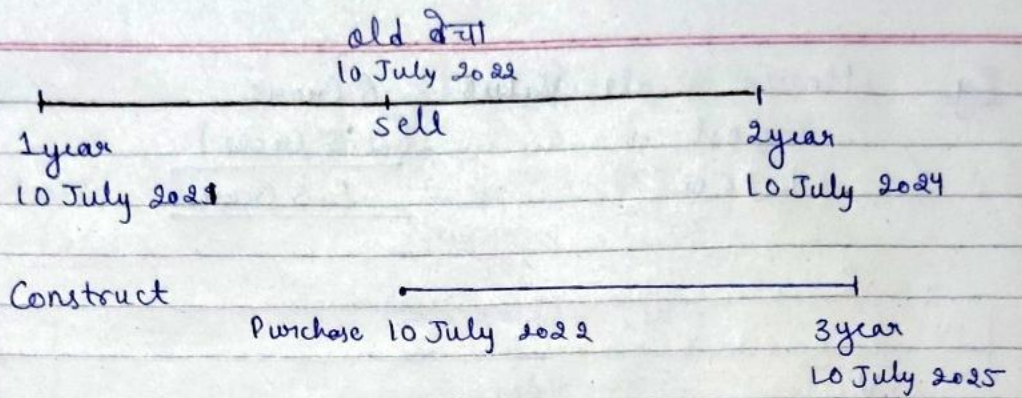 old बेचा
10 July 2022
sell
1 year
2 year
10 July 2021
10 July 2024
Construct
Purchase 10 July 2022
3 year
10 July 2025